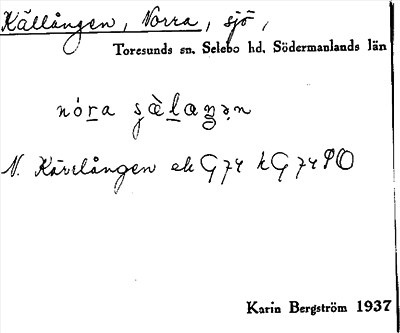 Källången, Norra, sjö,
Toresunds sn. Selebo hd. Södermanlands län
N. Kärrlången ek G74 kG74 PO
Karin Bergström 1937